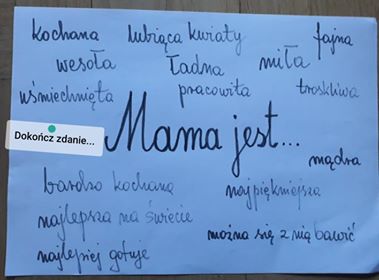 kochana lubiąca kwiaty fajna
wesoła ładna miła
uśmiechnięta pracowita troskliwa
Dokończ zdanie...
Mama jest...
mądra
bardzo kochana najpiękniejsza
najlepsza na świecie
można się z nią bawić
najlepiej gotuje